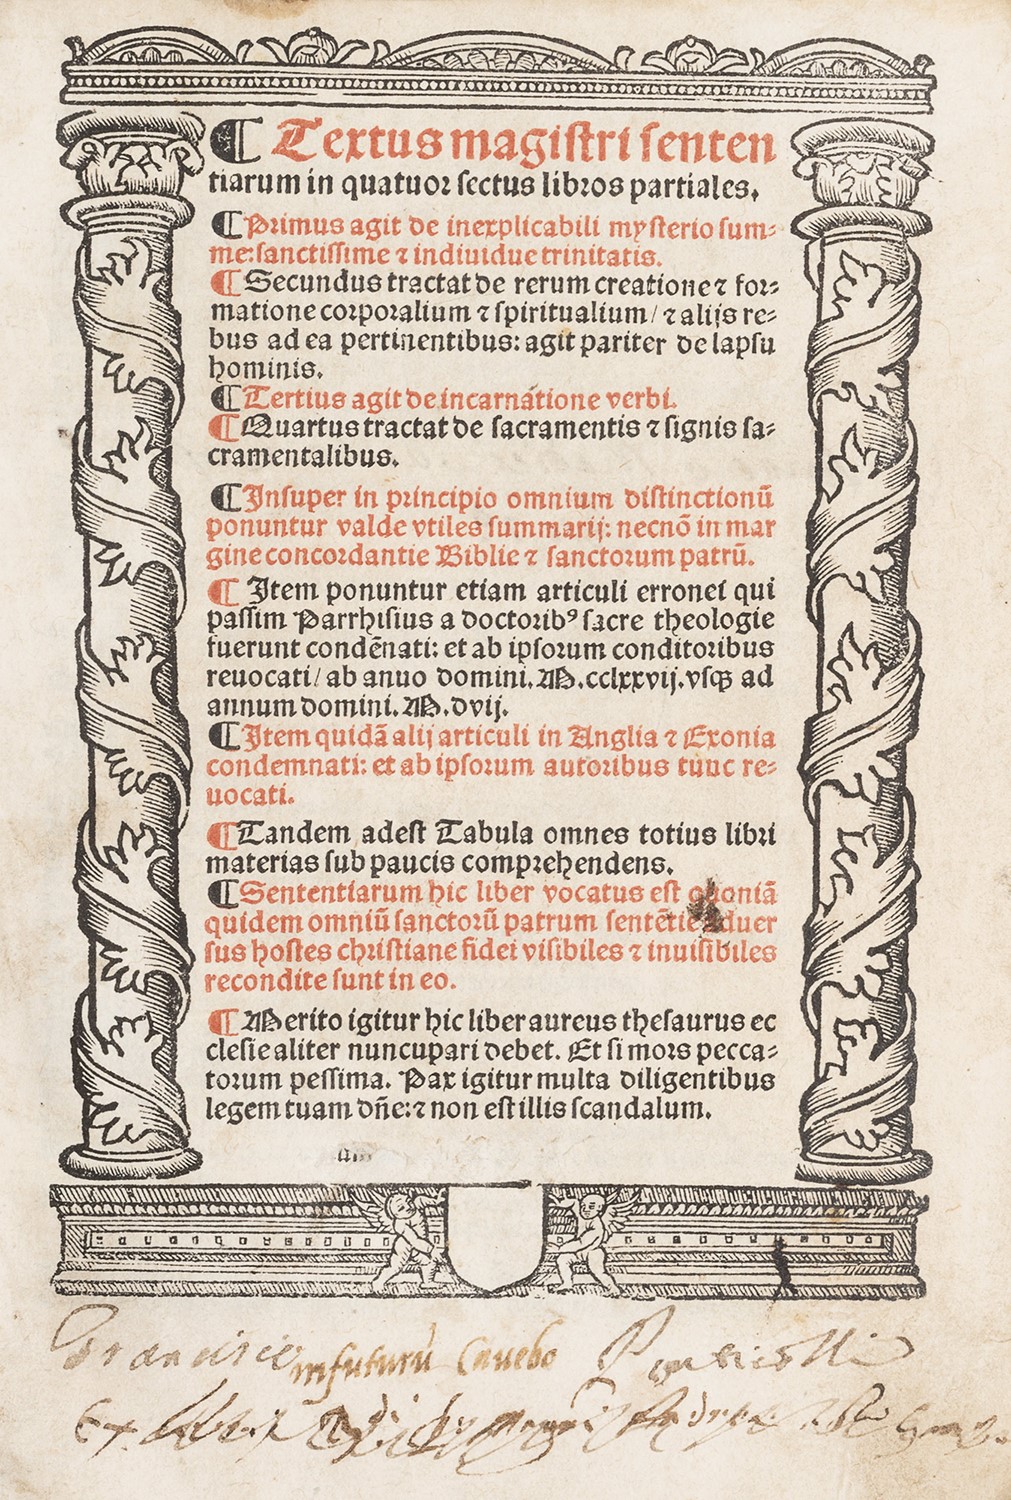 ¶ Textus magistri senten
tiarum in quatuor sectus libros partiales.
¶ Primus agit de inexplicabili mysterio sum⸗
me: sanctissime ⁊ indiuidue trinitatis.
¶ Secundus tractat de rerum creatione ⁊ for⸗
matione corporalium ⁊ spiritualium / ⁊ alijs re⸗
bus ad ea pertinentibus: agit pariter de lapsu
hominis.
¶ Tertius agit de incarnatione verbi.
¶ Quartus tractat de sacramentis ⁊ signis sa⸗
cramentalibus.
¶ Insuper in principio omnium distinctionū
ponuntur valde vtiles summarij: necnō in mar
gine concordantie Biblie ⁊ sanctorum patrū.
¶ Item ponuntur etiam articuli erronei qui
passim Parrhisius a doctoribꝰ sacre theologie
fuerunt condēnati: et ab ipsorum conditoribus
reuocati / ab anuo domini. M. cclxxvij. vsqꝫ ad
annum domini. M. dvij.
¶ Item quidā alij articuli in Anglia ⁊ Exonia
condemnati: et ab ipsorum autoribus tūuc re⸗
uocati.
¶ Tandem adest Tabula omnes totius libri
materias sub paucis comprehendens.
¶ Sententiarum hic liber vocatus est quoniā
quidem omniū sanctorū patrum sentētie aduer
sus hostes christiane fidei visibiles ⁊ inuisibiles
recondite sunt in eo.
¶ Merito igitur hic liber aureus thesaurus ec
clesie aliter nuncupari debet. Et si mors pecca⸗
torum pessima. Pax igitur multa diligentibus
legem tuam dñe: ⁊ non est illis scandalum.
in futurū Cavebo
Ex